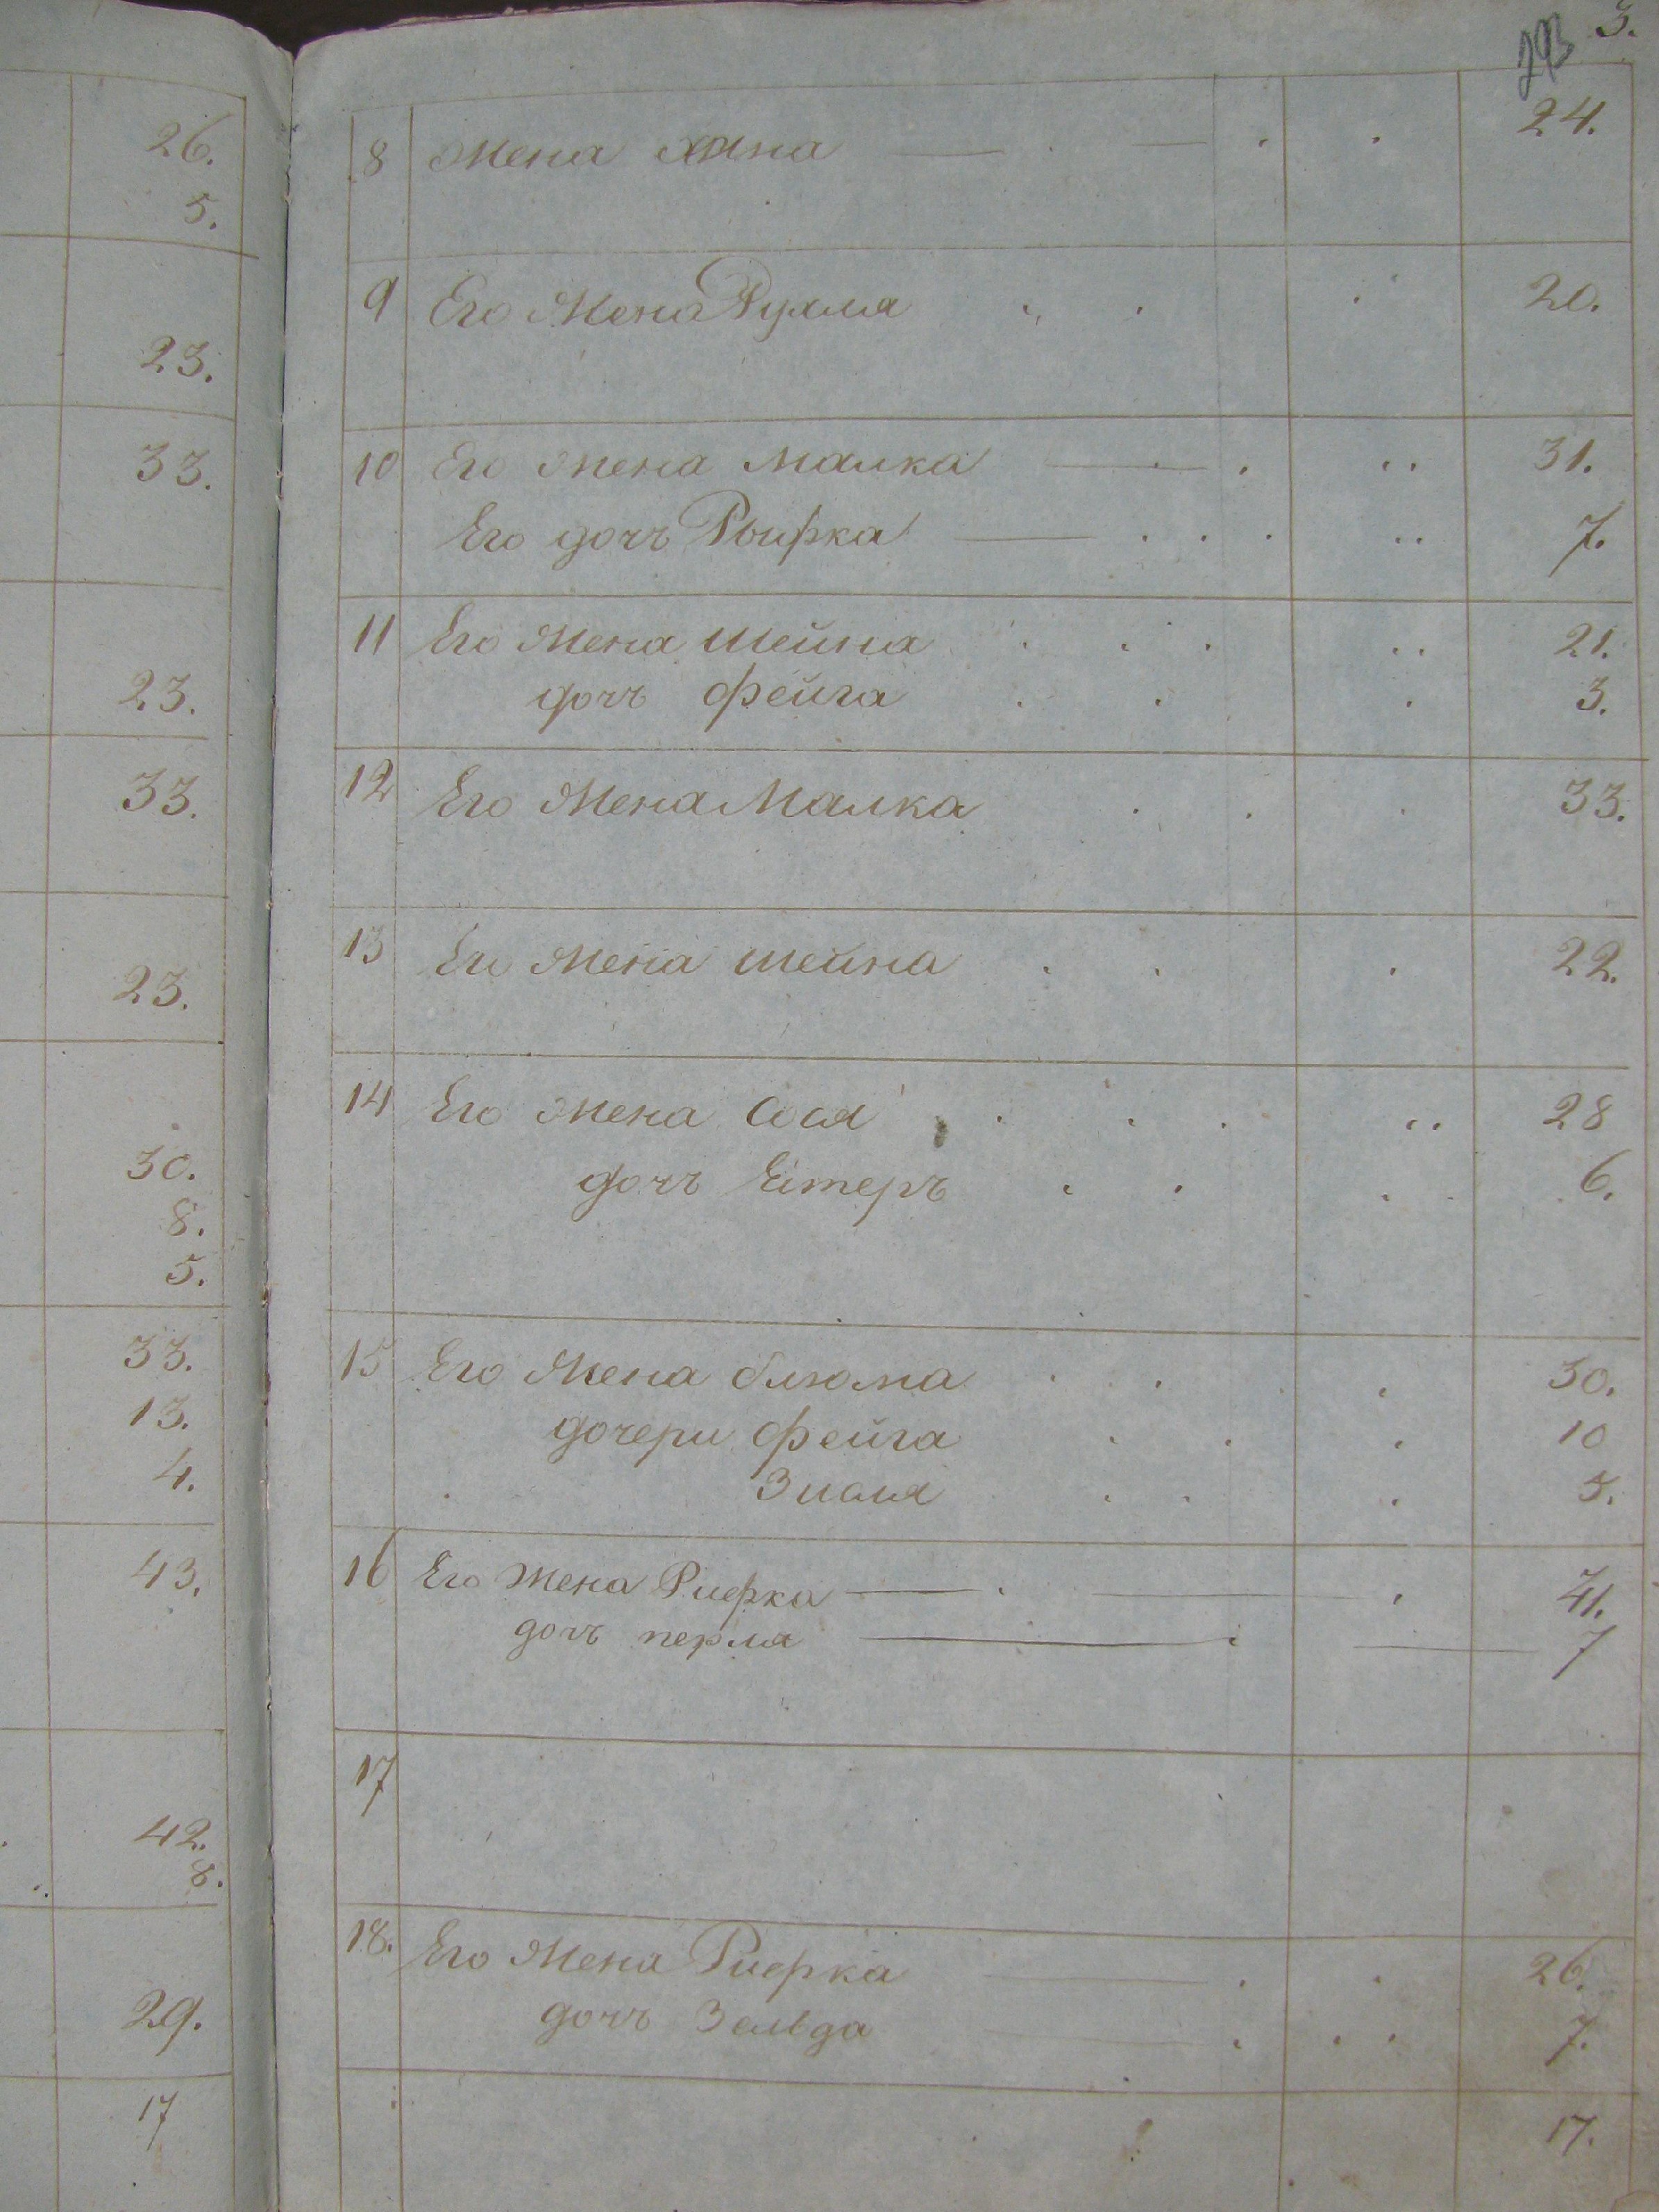 26.
5.
23.
33.
23.
33.
23.
30.
8.
5.
33.
13.
4.
43.
42.
8.
29.
17
3.
293
8 Жена Хана 24.
9 Его Жена Рухля 20.
10 Его жена Малка 31.
Его дочь Рывка 7.
11 Его Жена Шейна 21.
дочь Фейга 3.
12 Его Жена Малка 33.
13 Его Жена Шейна 22.
14 Его жена Сося 28
дочь Естеръ 6.
15 Его Жена Блюма 30.
дочери Фейга 10
5.
16 Его Жена Рифка 41.
дочь перля 7
17
18. Его Жена Рифка 26.
дочь Зельда 7.
17.